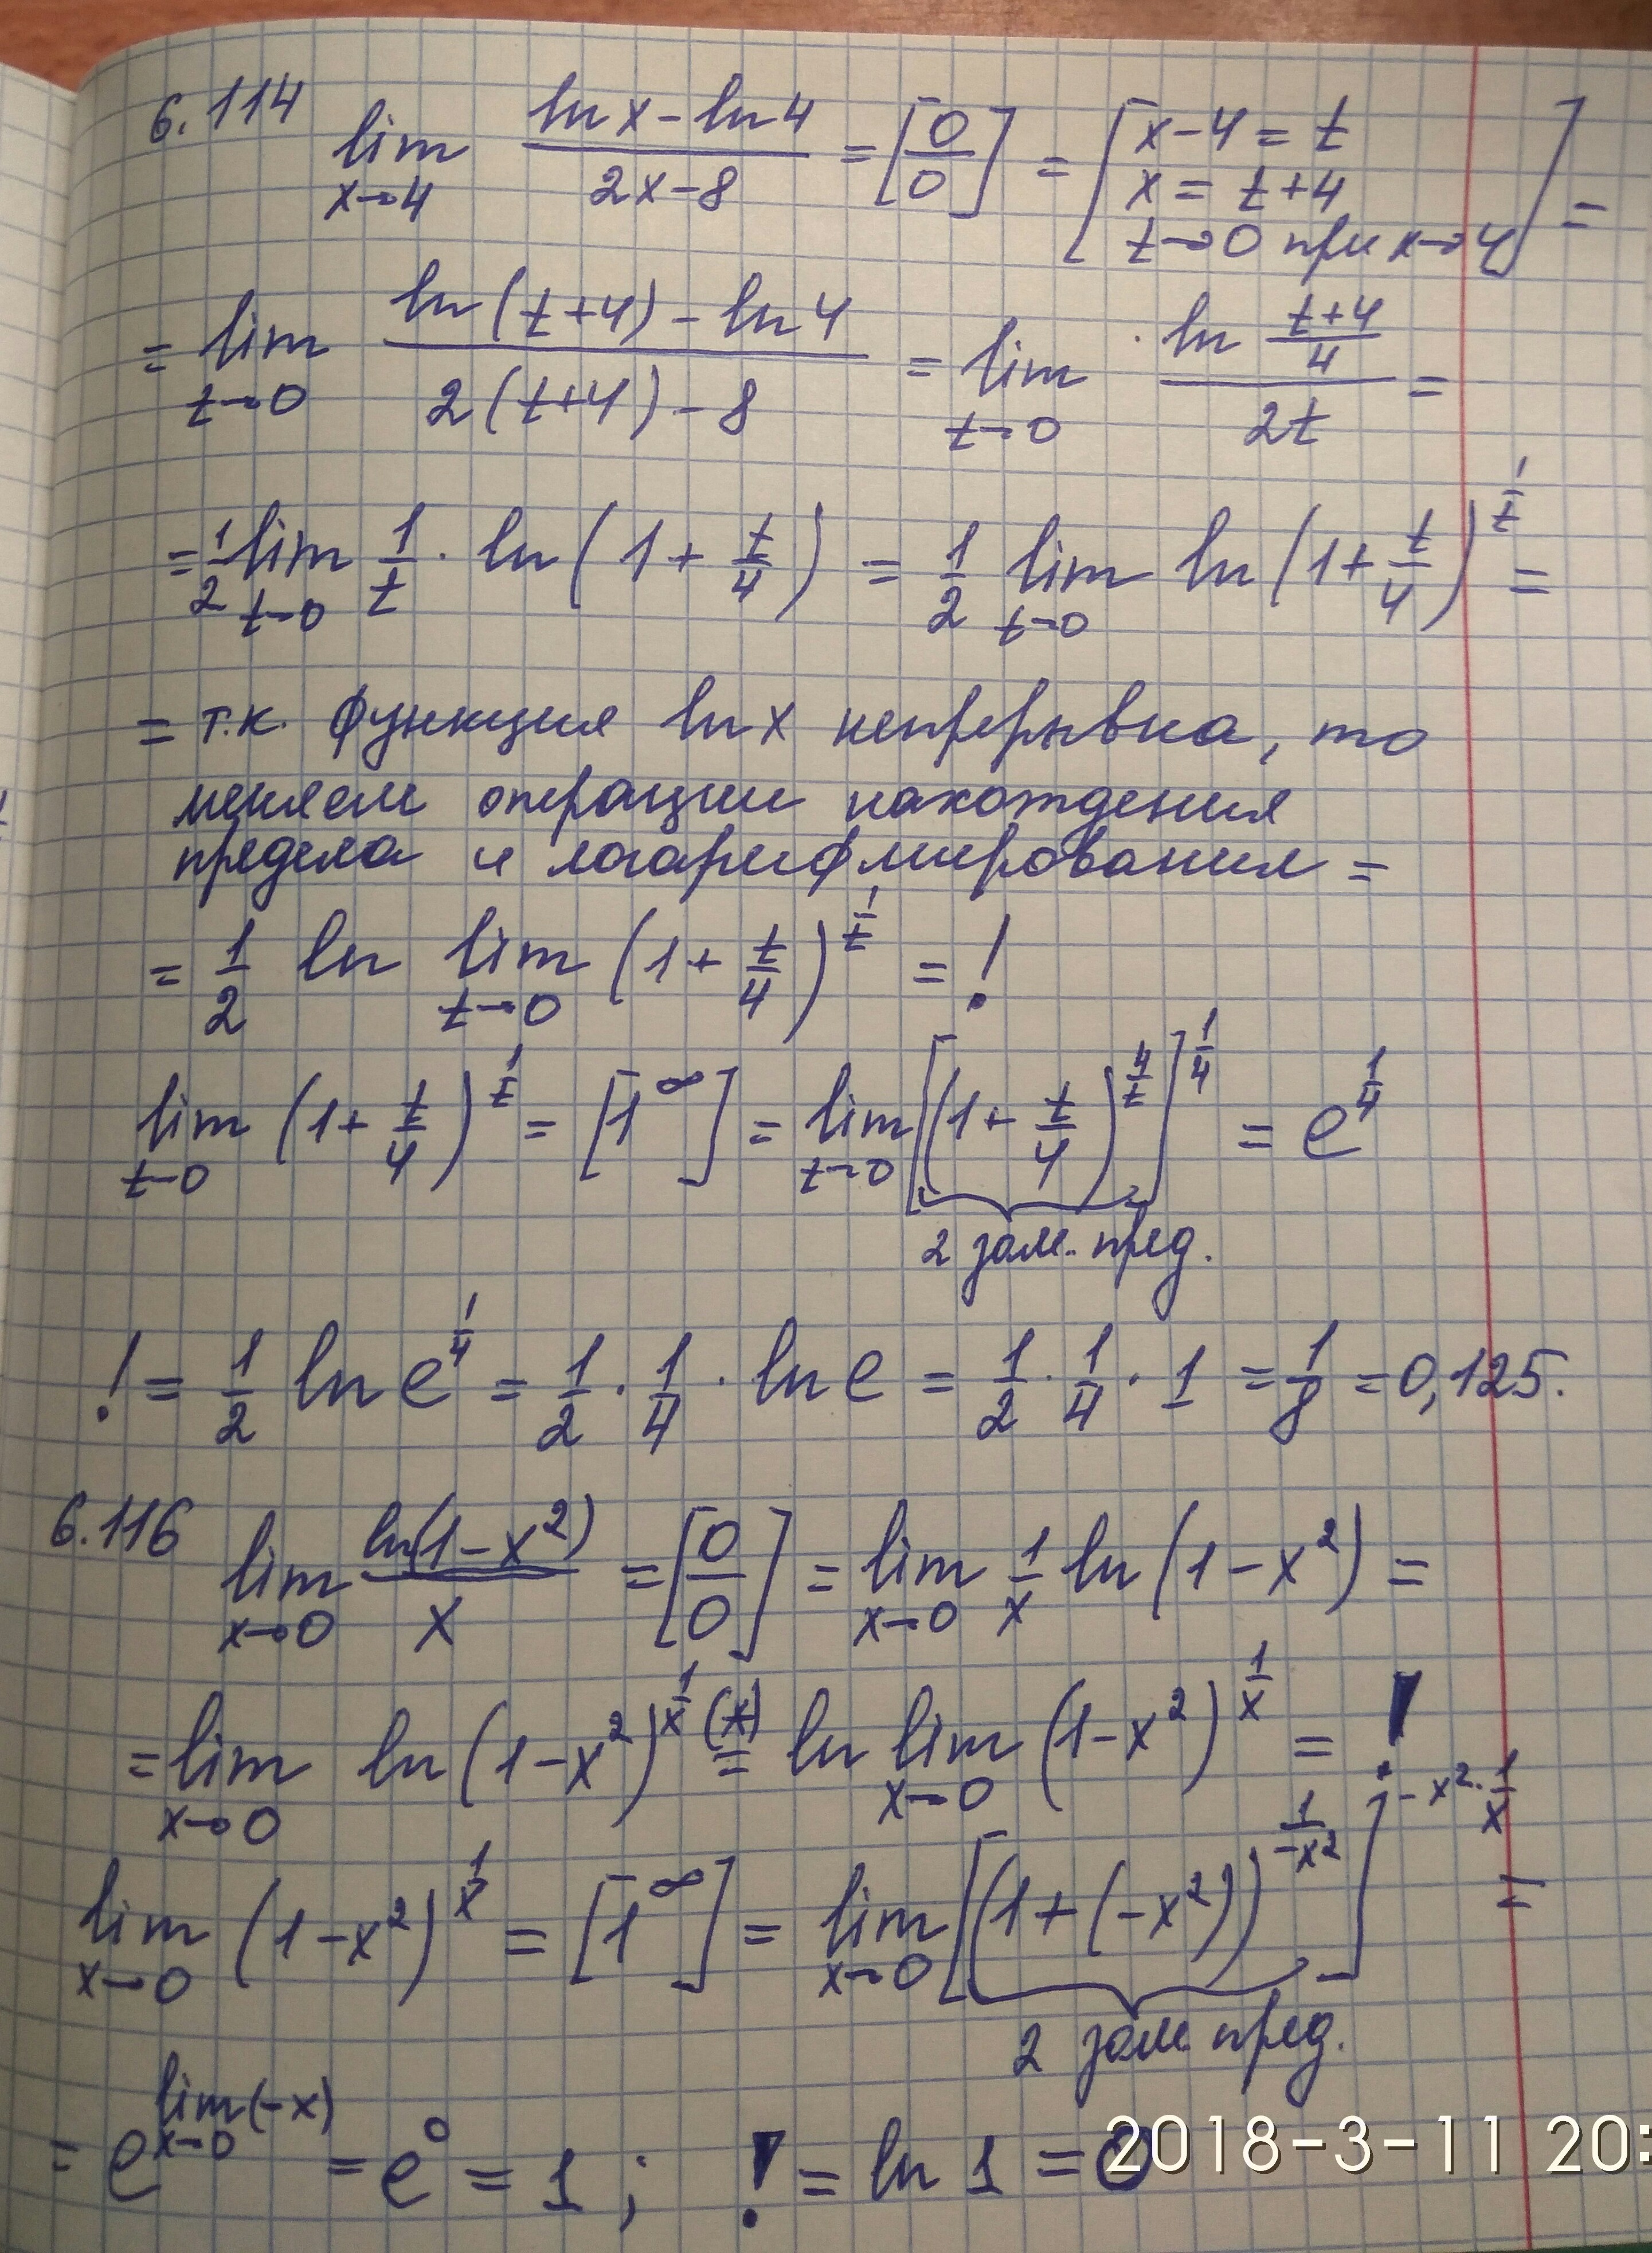 6.114 lim x→4 (ln x − ln 4)/(2x − 8) = [0/0] = [x − 4 = t
x = t + 4
t→0 при x→4] =
= lim t→0 (ln(t+4) − ln 4)/(2(t+4) − 8) = lim t→0 (ln (t+4)/4)/(2t) =
= 1/2 lim t→0 1/t · ln(1 + t/4) = 1/2 lim t→0 ln(1 + t/4)^(1/t) =
= т.к. функция ln x непрерывна, то
меняем операции нахождения
предела и логарифмирования =
= 1/2 ln lim t→0 (1 + t/4)^(1/t) = !
lim t→0 (1 + t/4)^(1/t) = [1^∞] = lim t→0 [(1 + t/4)^(4/t)]^(1/4) = e^(1/4)
2 зам. пред.
! = 1/2 ln e^(1/4) = 1/2 · 1/4 · ln e = 1/2 · 1/4 · 1 = 1/8 = 0,125.
6.116 lim x→0 ln(1 − x²)/x = [0/0] = lim x→0 1/x ln(1 − x²) =
= lim x→0 ln(1 − x²)^(1/x) (*)= ln lim x→0 (1 − x²)^(1/x) = !
lim x→0 (1 − x²)^(1/x) = [1^∞] = lim x→0 [(1 + (−x²))^(1/−x²)]^(−x² · 1/x) =
2 зам. пред.
= e^(lim x→0 (−x)) = e^0 = 1 ; ! = ln 1 = 0
2018-3-11 20: